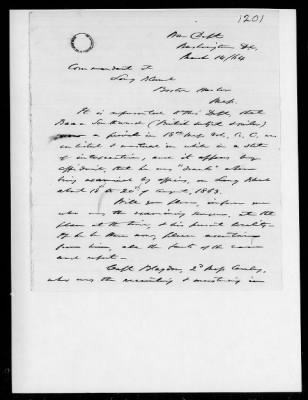 1201
War Dept
Washington D.C.
March 14/64
Commandant at
Long Island
Boston Harbor
Mass.
It is represented to this Dept, that
Isaac
a private in 18th Mass Vol,
enlisted & mustered in while in a state
of intoxication, and it appears by
affidavit, that he was "drunk" when
being examined by officer, on Long Island
about 18th to 20th of August, 1863.
Will you please, inform me
who was the examining surgeon, at the
place at the time, & his present locality.
If he be there now, please ascertain
from him, also the facts of the case
and report.
Capt Blagden, 2d Mass Cavalry,
who was the recruiting & mustering in